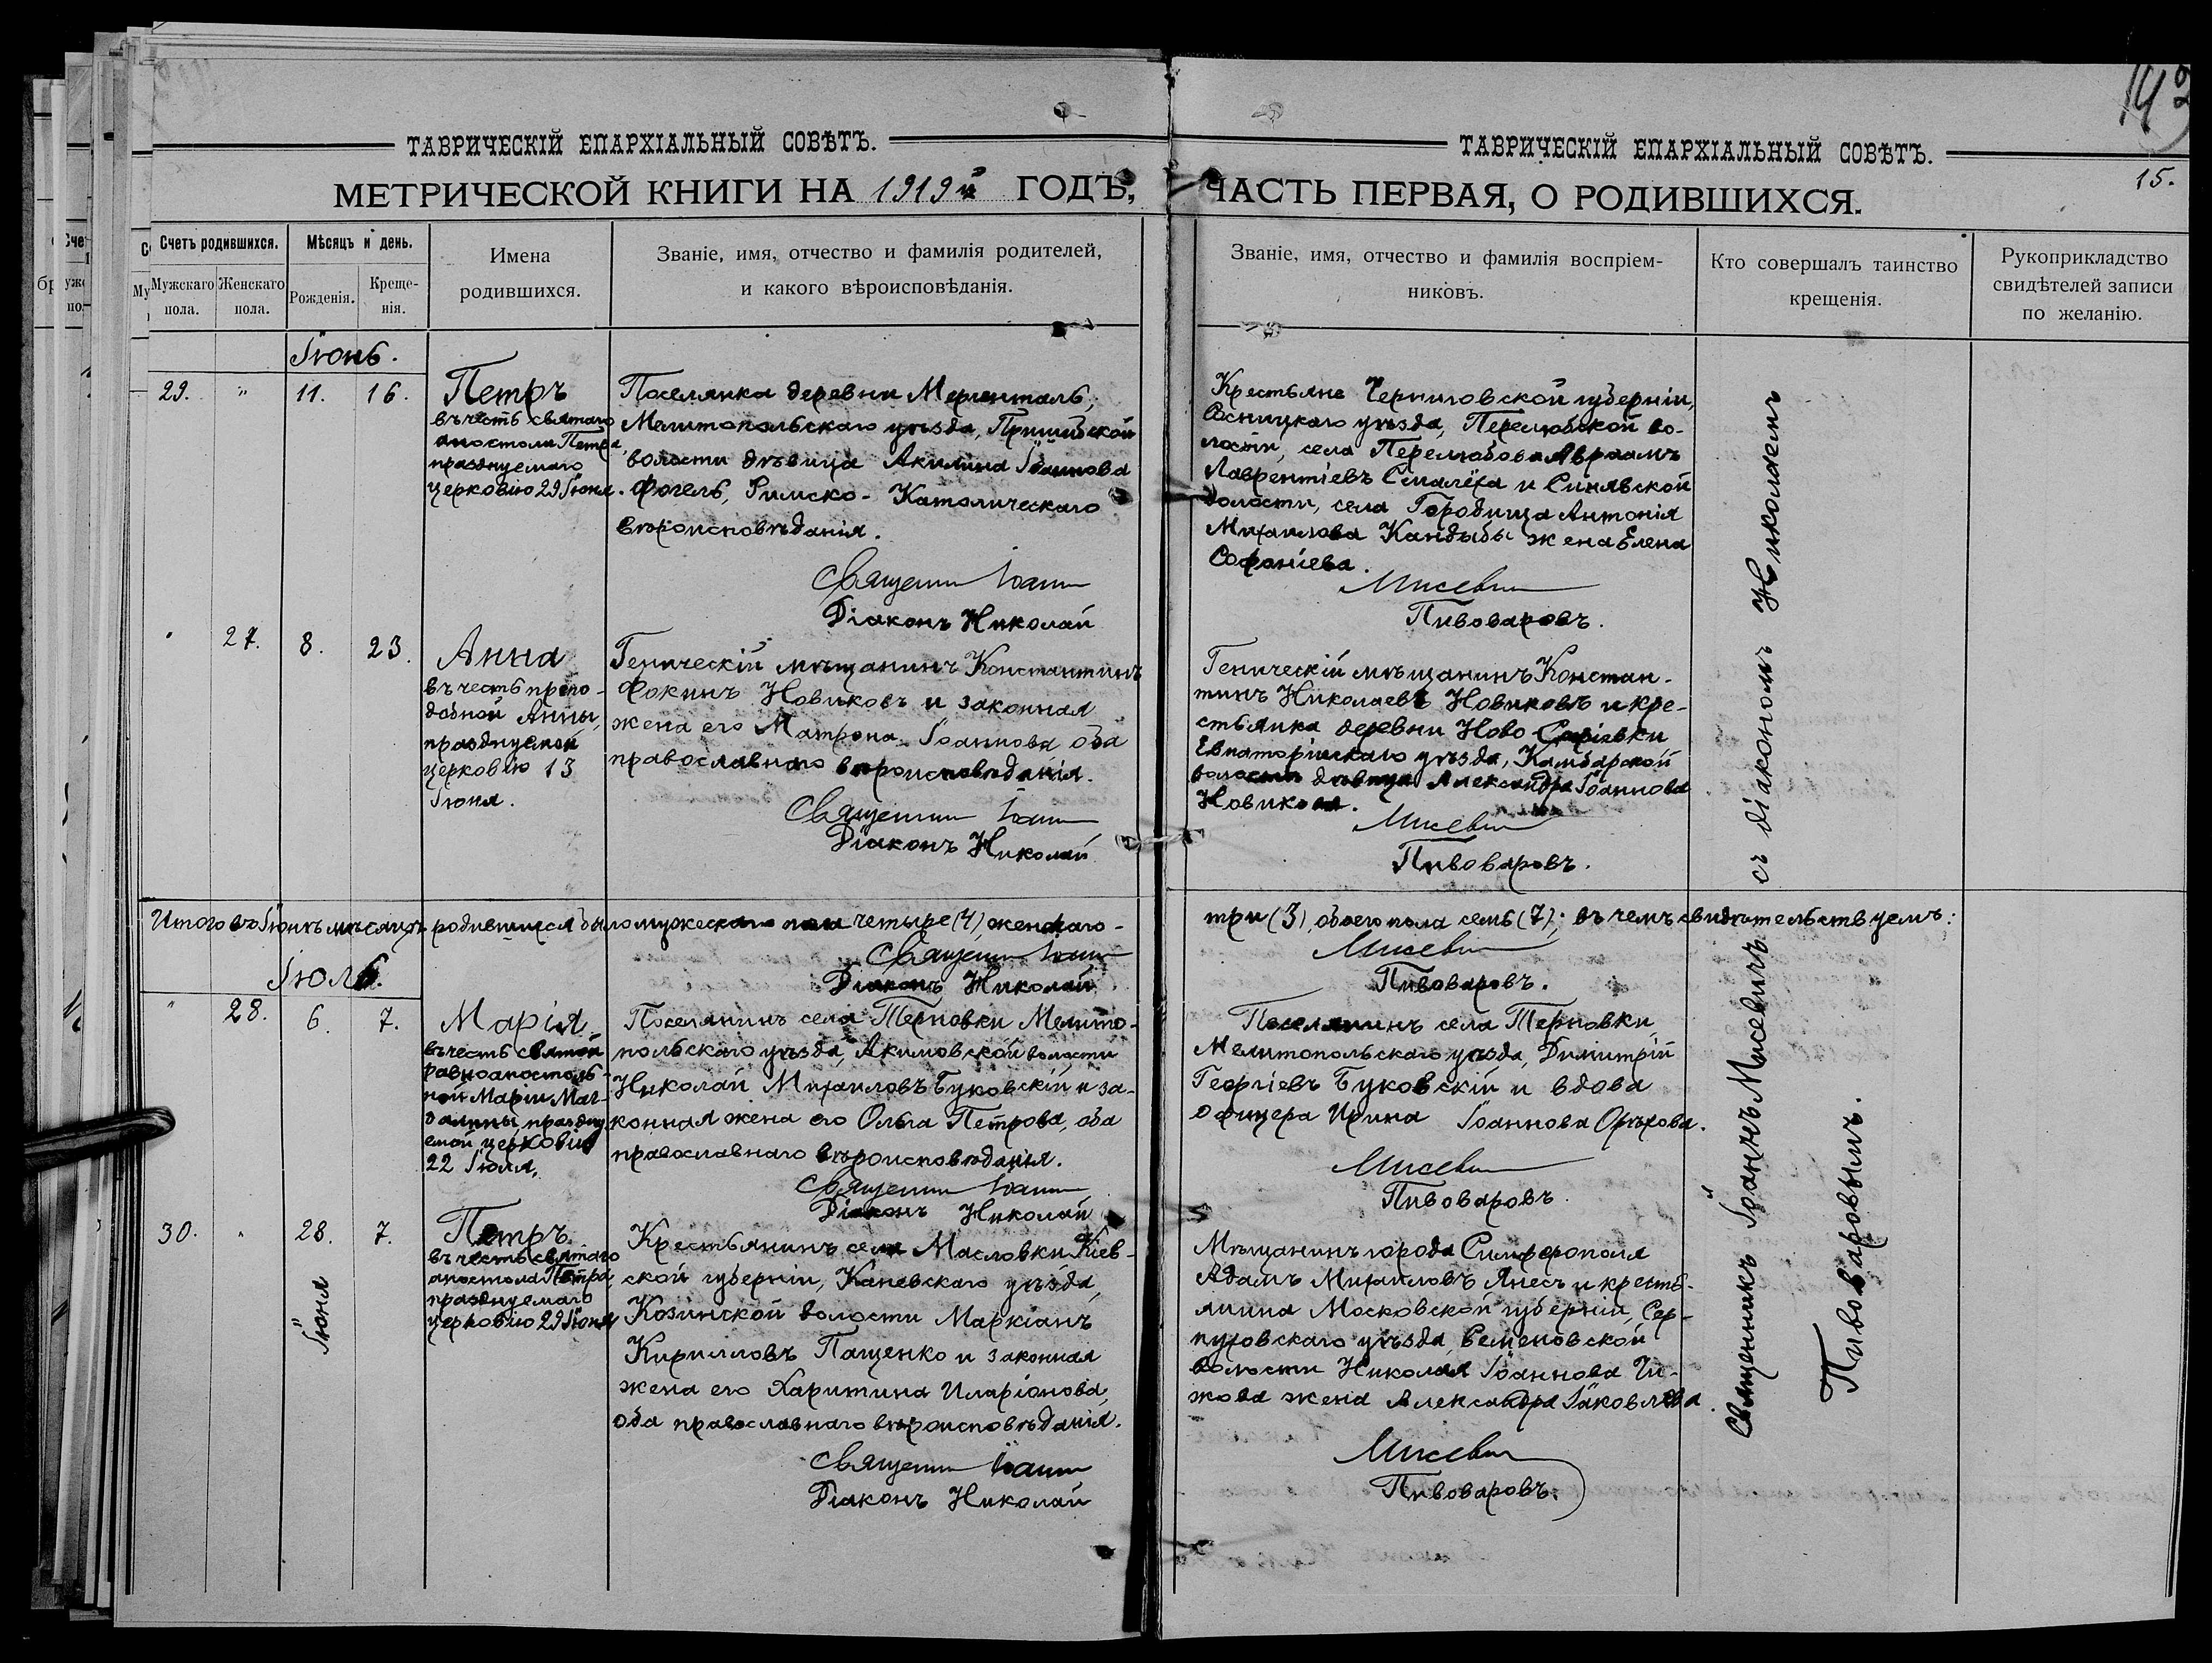 ТАВРИЧЕСКІЙ ЕПАРХІАЛЬНЫЙ СОВѢТЪ.
МЕТРИЧЕСКОЙ КНИГИ НА 1919й ГОДЪ,
Счетъ родившихся.
Мужскаго пола.
Женскаго пола.
Мѣсяцъ и день.
Рожденія.
Креще-
нія.
Имена
родившихся.
Званіе, имя, отчество и фамилія родителей,
и какого вѣроисповѣданія.
ТАВРИЧЕСКІЙ ЕПАРХІАЛЬНЫЙ СОВѢТЪ.
15.
ЧАСТЬ ПЕРВАЯ, О РОДИВШИХСЯ.
Званіе, имя, отчество и фамилія воспріем-
никовъ.
Кто совершалъ таинство
крещенія.
Рукоприкладство
свидѣтелей записи
по желанію.
Іюнь.
29. " 11. 16.
Петръ
въ честь святаго
апостола Петра,
празднуемаго
церковію 29 Іюня.
Поселянка деревни Мергенталь,
Мелитопольскаго уѣзда, Пришибской
волости дѣвица Акилина Іоаннова
Фогель, Римско-Католическаго
вѣроисповѣданія.
Священни Іоанн
Діаконъ Николай
Крестьяне Черниговской губерніи,
Сосницкаго уѣзда, Перелюбской во-
лости, села Перелюбова Авраамъ
Лаврентіевъ и Синявской
волости, села Городища Антонія
Михаилова Кандыбы жена Елена
Софоніева.
Мисевич
Пивоваровъ.
" 27. 8. 23.
Анна
въ честь препо-
добной Анны,
празднуемой
церковію 13
Іюня.
Геническій мѣщанинъ Константинъ
Фокинъ Новиковъ и законная
жена его Матрона Іоаннова оба
православнаго вѣроисповѣданія.
Священни Іоанн
Діаконъ Николай
Геническій мѣщанинъ Констан-
тинъ Николаевъ Новиковъ и кре-
стьянка деревни Ново
Евпаторійскаго уѣзда, Камбарской
волости дѣвица Александра Іоаннова
Новикова.
Мисевич
Пивоваровъ.
Итого въ Іюнѣ мѣсяцѣ родившихся было мужескаго пола четыре (4), женскаго -
три (3), обоего пола семь (7); въ чемъ свидѣтельствуемъ:
Священни Іоанн
Діаконъ Николай
Мисевич
Пивоваровъ.
Іюль.
" 28. 6. 7.
Марія
въ честь святой
равноапостоль-
ной Маріи Маг-
далины, праздну
емой церковію
22 Іюля.
Поселянинъ села Терновки Мелито-
польскаго уѣзда, Акимовской волости
Николай Михаиловъ Буковскій и за-
конная жена его Ольга Петрова, оба
православнаго вѣроисповѣданія.
Священни Іоанн
Діаконъ Николай
Поселянинъ села Терновки
Мелитопольскаго уѣзда, Димитрій
Георгіевъ Буковскій и вдова
офицера Ирина Іоаннова Орѣхова.
Мисевич
Пивоваровъ
30. " 28. 7.
Іюня
Петръ
въ честь святаго
апостола Петра,
празднуемаго
церковію 29 Іюня
Крестьянинъ села Масловки Кіев-
ской губерніи, Каневскаго уѣзда,
Козинской волости Маркіанъ
Кирилловъ Пащенко и законная
жена его Харитина Иларіонова,
оба православнаго вѣроисповѣданія.
Священни Іоанн
Діаконъ Николай
Мѣщанинъ города Симферополя
Адамъ Михаиловъ Янесъ и кресть-
янина Московской губерніи, Сер-
пуховскаго уѣзда, Семеновской
волости Николая Іоаннова Чи-
жова жена Александра Іаковлева.
Мисевич
Пивоваровъ.
Священникъ Іоаннъ Мисевичъ съ діакономъ Николаемъ
Пивоваровымъ.